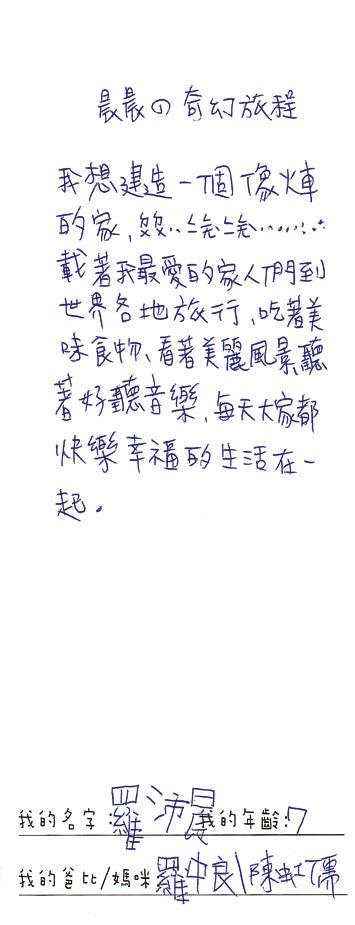 晨晨の奇幻旅程
我想建造一個像火車
的家,
載著我最愛的家人們到
世界各地旅行,吃著美
味食物、看著美麗風景,聽
著好聽音樂,每天大家都
快樂幸福的生活在一
起.
我的名字:羅沛晨 我的年齡:7
我的爸比/媽咪 羅仲良\陳虹儒